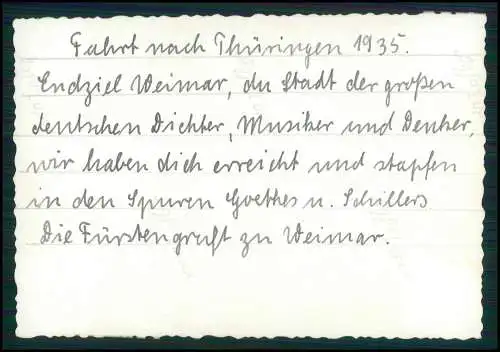 Fahrt nach Thüringen 1935.
Endziel Weimar, du Stadt der großen
deutschen Dichter, Musiker und Denker,
wir haben dich erreicht und stapfen
in den Spuren Goethes u. Schillers
Die Fürstengruft zu Weimar.